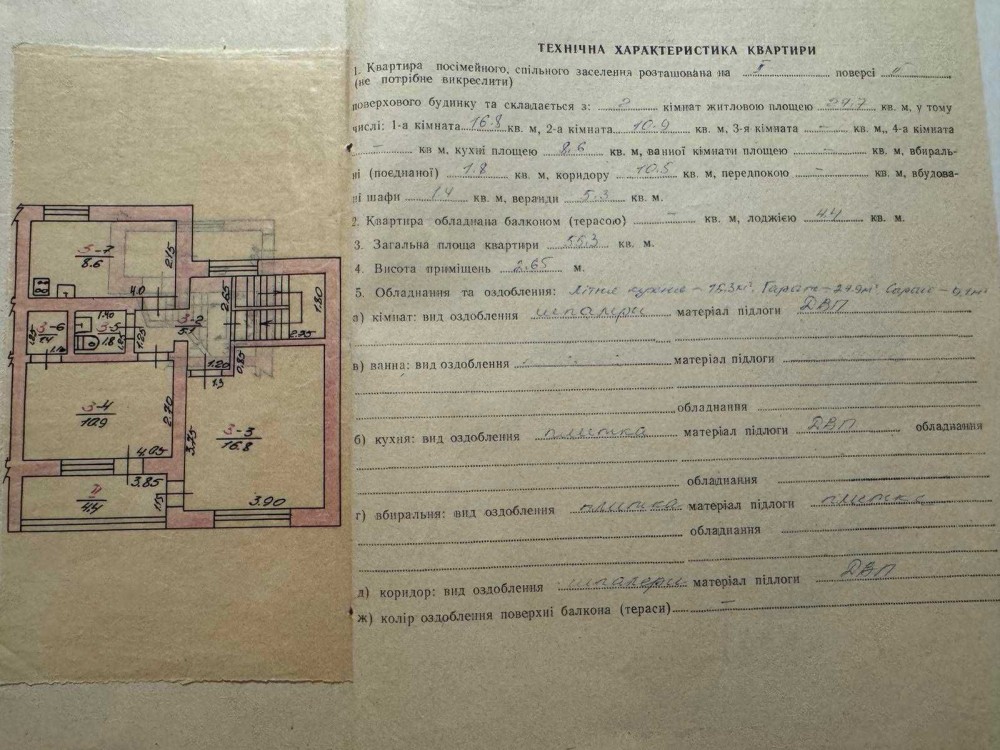 ТЕХНІЧНА ХАРАКТЕРИСТИКА КВАРТИРИ
1. Квартира посімейного, спільного заселення розташована на II поверсі II
(не потрібне викреслити)
поверхового будинку та складається з: 2 кімнат житловою площею 27.7 кв. м, у тому
числі: 1-а кімната 16.8 кв. м, 2-а кімната 10.9 кв. м, 3-я кімната — кв. м,, 4-а кімната
— кв м, кухні площею 8.6 кв. м, ванної кімнати площею — кв. м, вбираль-
ні (поєднаної) 1.8 кв. м, коридору 10.5 кв. м, передпокою — кв. м, вбудова-
ні шафи 1.4 кв. м, веранди 5.3 кв. м.
2. Квартира обладнана балконом (терасою) — кв. м, лоджією 4.4 кв. м.
3. Загальна площа квартири 55.3 кв. м.
4. Висота приміщень 2.65 м.
5. Обладнання та оздоблення: Літня кухня – 15.3 м², Гараж – 24.9 м², Сарай –
а) кімнат: вид оздоблення шпалери матеріал підлоги ДВП
в) ванна: вид оздоблення матеріал підлоги
обладнання
б) кухня: вид оздоблення плитка матеріал підлоги ДВП обладнання
обладнання
г) вбиральня: вид оздоблення плитка матеріал підлоги плитка
обладнання
д) коридор: вид оздоблення шпалери матеріал підлоги ДВП
ж) колір оздоблення поверхні балкона (тераси) —
3-7
8.6
2.15
4.0
2.65
1.80
2.75
3-6
1.4
1.40
3-5
1.8
1.25
1.25
3-2
5.1
1.20
1.3
0.85
3-4
10.9
2.70
4.05
3-3
16.8
3.75
3.90
3.85
4.4
1.15